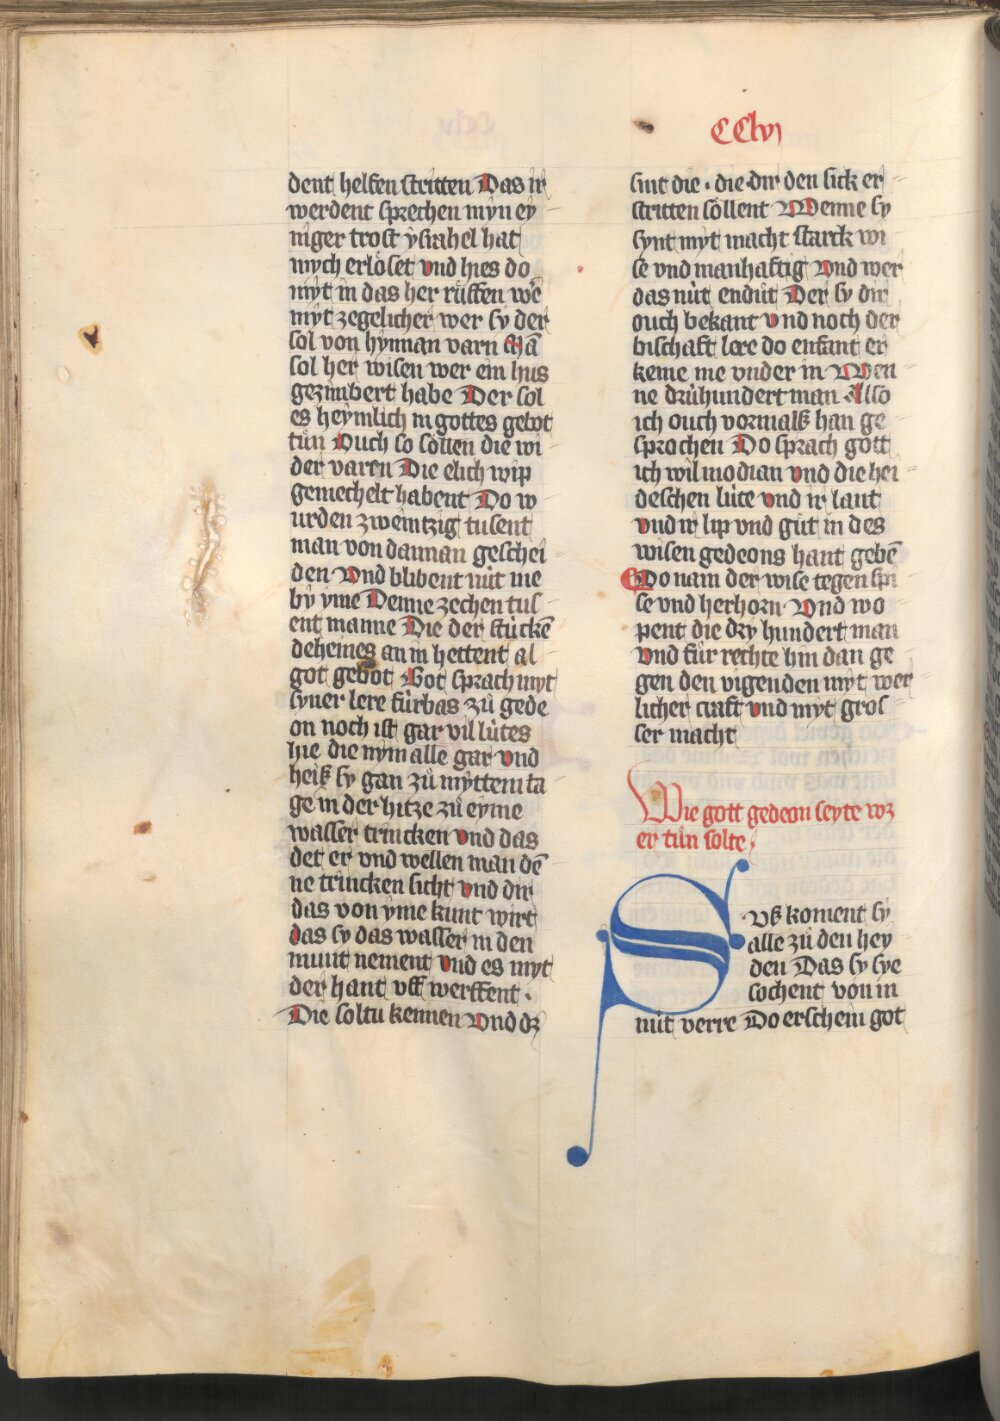 CClvj
dent helfen stritten Das ir
werdent sprechen myn ey
niger trost ÿsrahel hat
mych erlöset vnd hies do
myt in das her rüffen wē
myt zegelicher wer sy der
sol von hynnan varn Mā
sol her wisen wer ein hus
gezimbert habe Der sol
es heymlich in gottes gebot
tůn Ouch so söllen die wi
der varen Die elich wip
gemechelt habent Do w
urden zweintzig tusent
man von dannan geschei
den Vnd blibent nüt me
by yme Denne zechen tus
ent manne Die der stücken̄
deheines an in hettent al
got gebot Got sprach myt
syner lere fürbas zů gede
on noch ist gar vil lütes
hie die nym alle gar vnd
heiß sy gan zů myttem ta
ge in der hitze zů eyme
wasser trincken vnd das
det er vnd wellen man dē
ne trincken sicht vnd dir
das von yme kunt wirt
das sy das wasser in den
munt nement vnd es myt
der hant vff werffent ·
Die soltu kennen Vnd dz
sint die · die dir den sick er
stritten söllent Wenne sy
synt myt macht starck wi
se vnd manhaftig Vnd wer
das nüt endüt Der sy dir
ouch bekant vnd noch der
bischaft lere do enkant er
keme me vnder in Wen
ne drühundert man Allso
ich ouch vormalß han ge
sprochen Do sprach gott
ich wil modian vnd die hei
deschen lüte vnd ir lant
vnd ir lip vnd gůt in des
wisen gedeons hant gebē
Do nam der wise tegen spi
se vnd herhorn Vnd wo
pent die dry hundert man
Vnd für rechte hin dan ge
gen den vigenden myt wer
licher craft vnd myt gros
ser macht
Wie gott gedeon seyte wz
er tůn solte
Svß koment sy
alle zů den hey
den Das sy sye
sochent von in
nüt verre Do erschein got